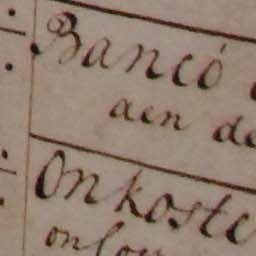 Bancó
aen de
Onkoste